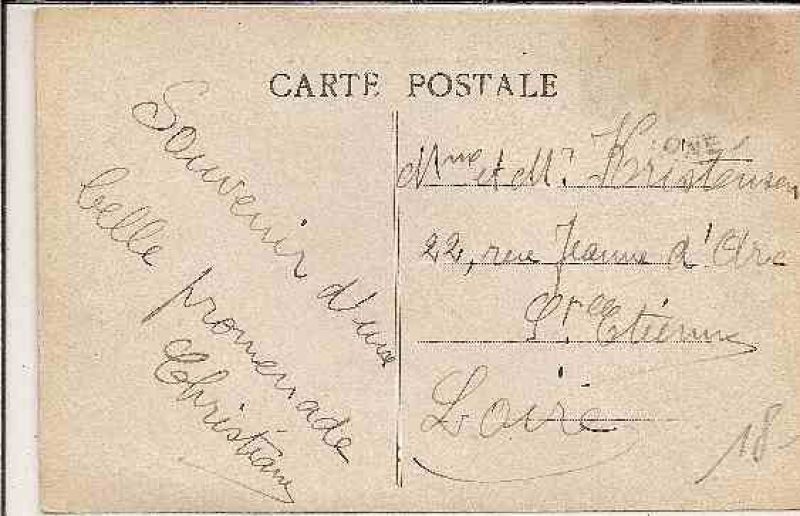 CARTE POSTALE
Souvenir d'une
belle promenade
Christiane
Mme et Mr Kristensen
22, rue Jeanne d'Arc
St Etienne
Loire
18